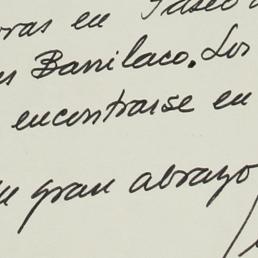 oras en Paseo
Barrilaco. Los
encontrarse en
un gran abrazo